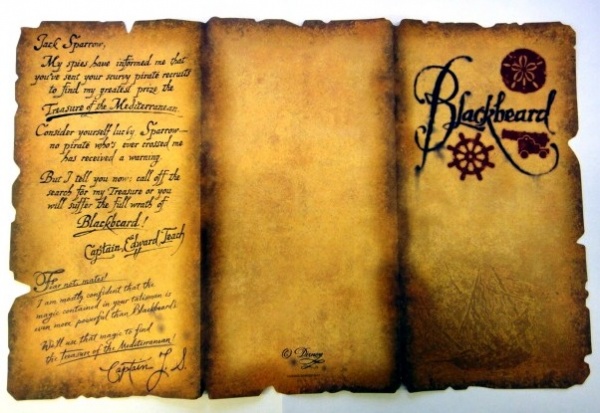 Jack Sparrow,
My spies have informed me that
you've sent your scurvy pirate recruits
to find my greatest prize, the
Treasure of the Mediterranean.
Consider yourself lucky, Sparrow—
no pirate who's ever crossed me
has received a warning.
But I tell you now: call off the
search for my Treasure or you
will suffer the full wrath of
Blackbeard!
Captain Edward Teach
Fear not, mates!
I am mostly confident that the
magic contained in your talisman is
even more powerful than Blackbeard's.
We'll use that magic to find
the Treasure of the Mediterranean!
Captain J. S.
© Disney
Blackbeard